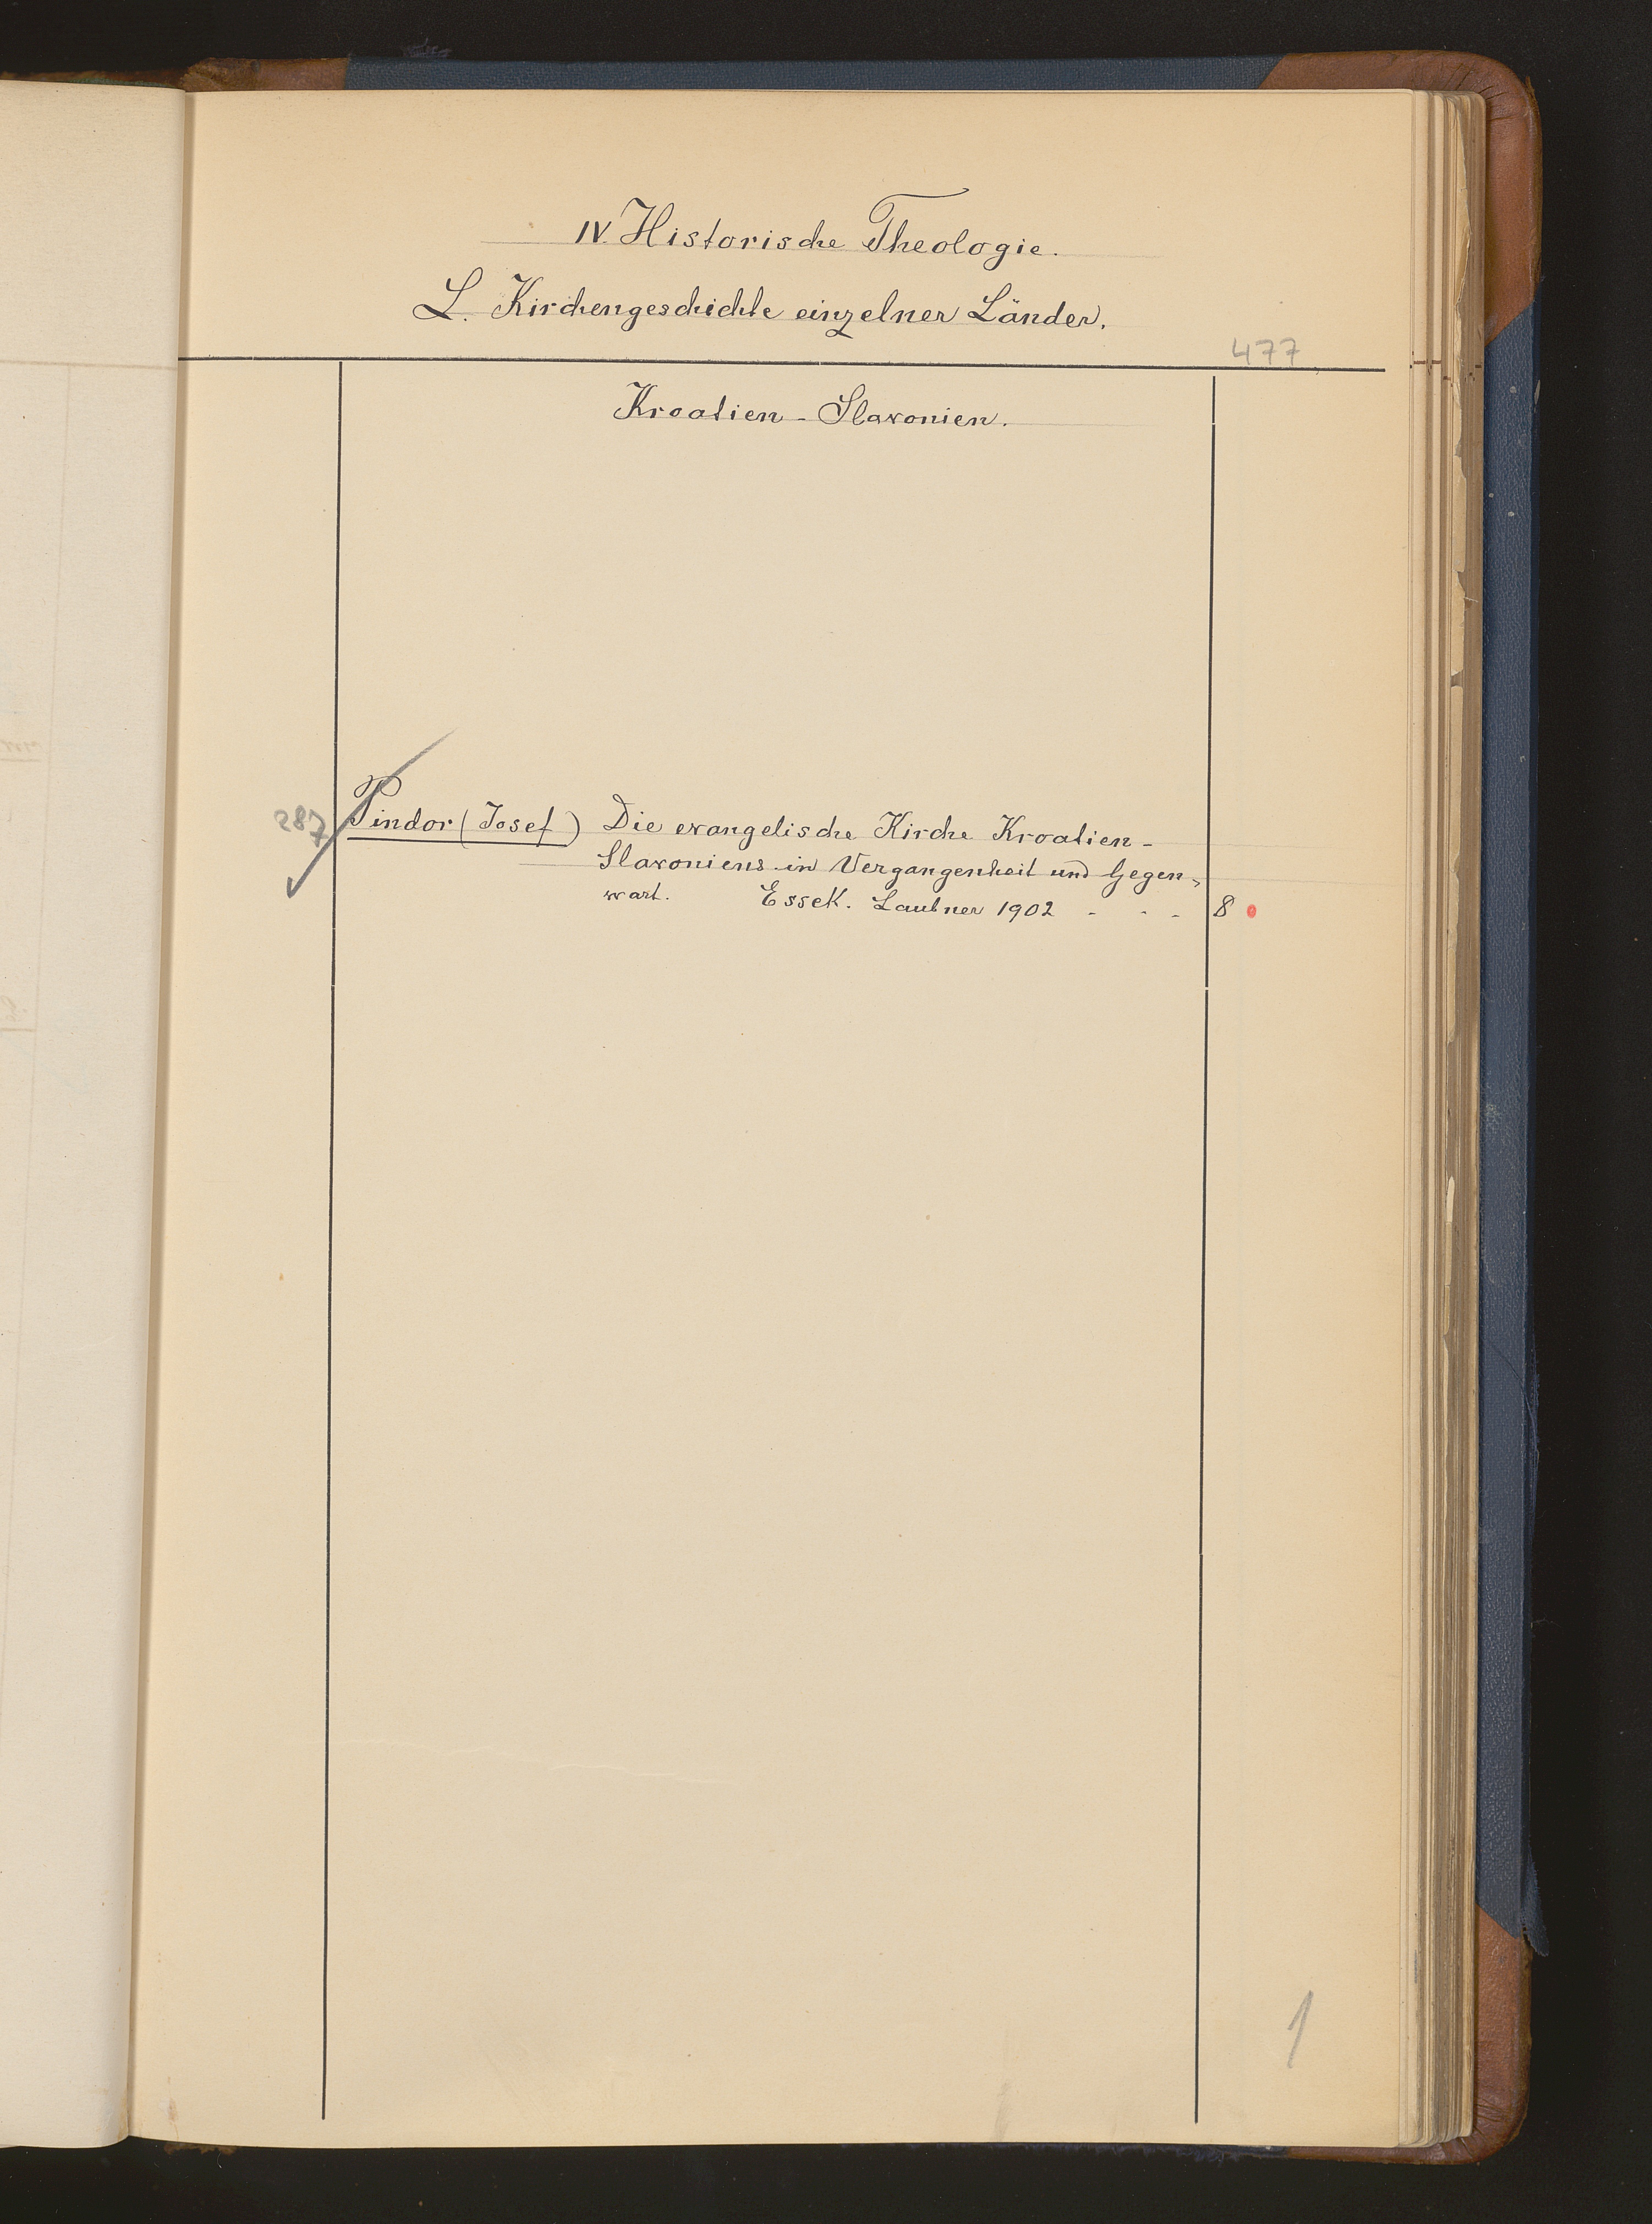 IV. Historische Theologie.
L. Kirchengeschichte einzelner Länder.
477
Kroatien - Slavonien.
287 Pindor (Josef) Die evangelische Kirche Kroatien-
Slavoniens in Vergangenheit und Gegen-
wart. Essek. Laubner 1902 - - - 8
1